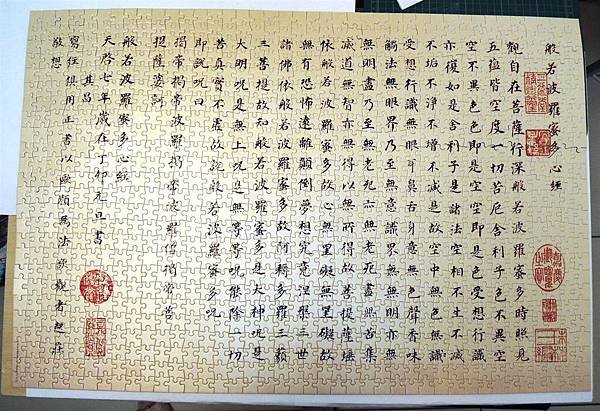 般若波羅蜜多心經
觀自在菩薩行深般若波羅蜜多時照見
五蘊皆空度一切苦厄舍利子色不異空
空不異色色即是空空即是色受想行識
亦復如是舍利子是諸法空相不生不滅
不垢不淨不增不減是故空中無色無
受想行識無眼耳鼻舌身意無色聲香味
觸法無眼界乃至無意識界無無明亦無
無明盡乃至無老死亦無老死盡無苦集
滅道無智亦無得以無所得故菩提薩埵
依般若波羅蜜多故心無罣礙無罣礙故
無有恐怖遠離顛倒夢想究竟涅槃三世
諸佛依般若波羅蜜多故阿耨多羅三藐
三菩提故知般若波羅蜜多是大神呪是
大明呪是無上呪是無等等呪能除一切
苦真實不虛故說般若波羅蜜多呪
即說呪曰
揭帝揭帝波羅揭帝波羅僧揭帝菩
提薩婆訶
般若波羅蜜多心經
天啓七年歲在丁卯元旦書
其昌
寫經俱用正書以歐顏為法觀者起莊
敬想